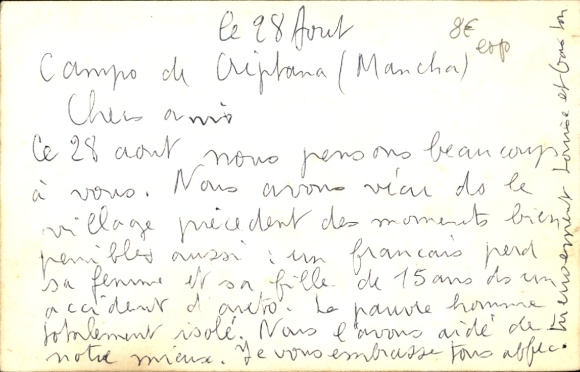 Le 28 Aout
8€
esp
Campo de Criptana (Mancha)
Chers amis
Ce 28 aout nous pensons beaucoup
à vous. Nous avons vécu ds le
village précédent des moments bien
penibles aussi : un francais perd
sa femme et sa fille de 15 ans ds un
accident d'auto. Le pauvre homme
totalement isolé. Nous l'avons aidé de
notre mieux. Je vous embrasse tous affec-
tueusement Louise et Gaston